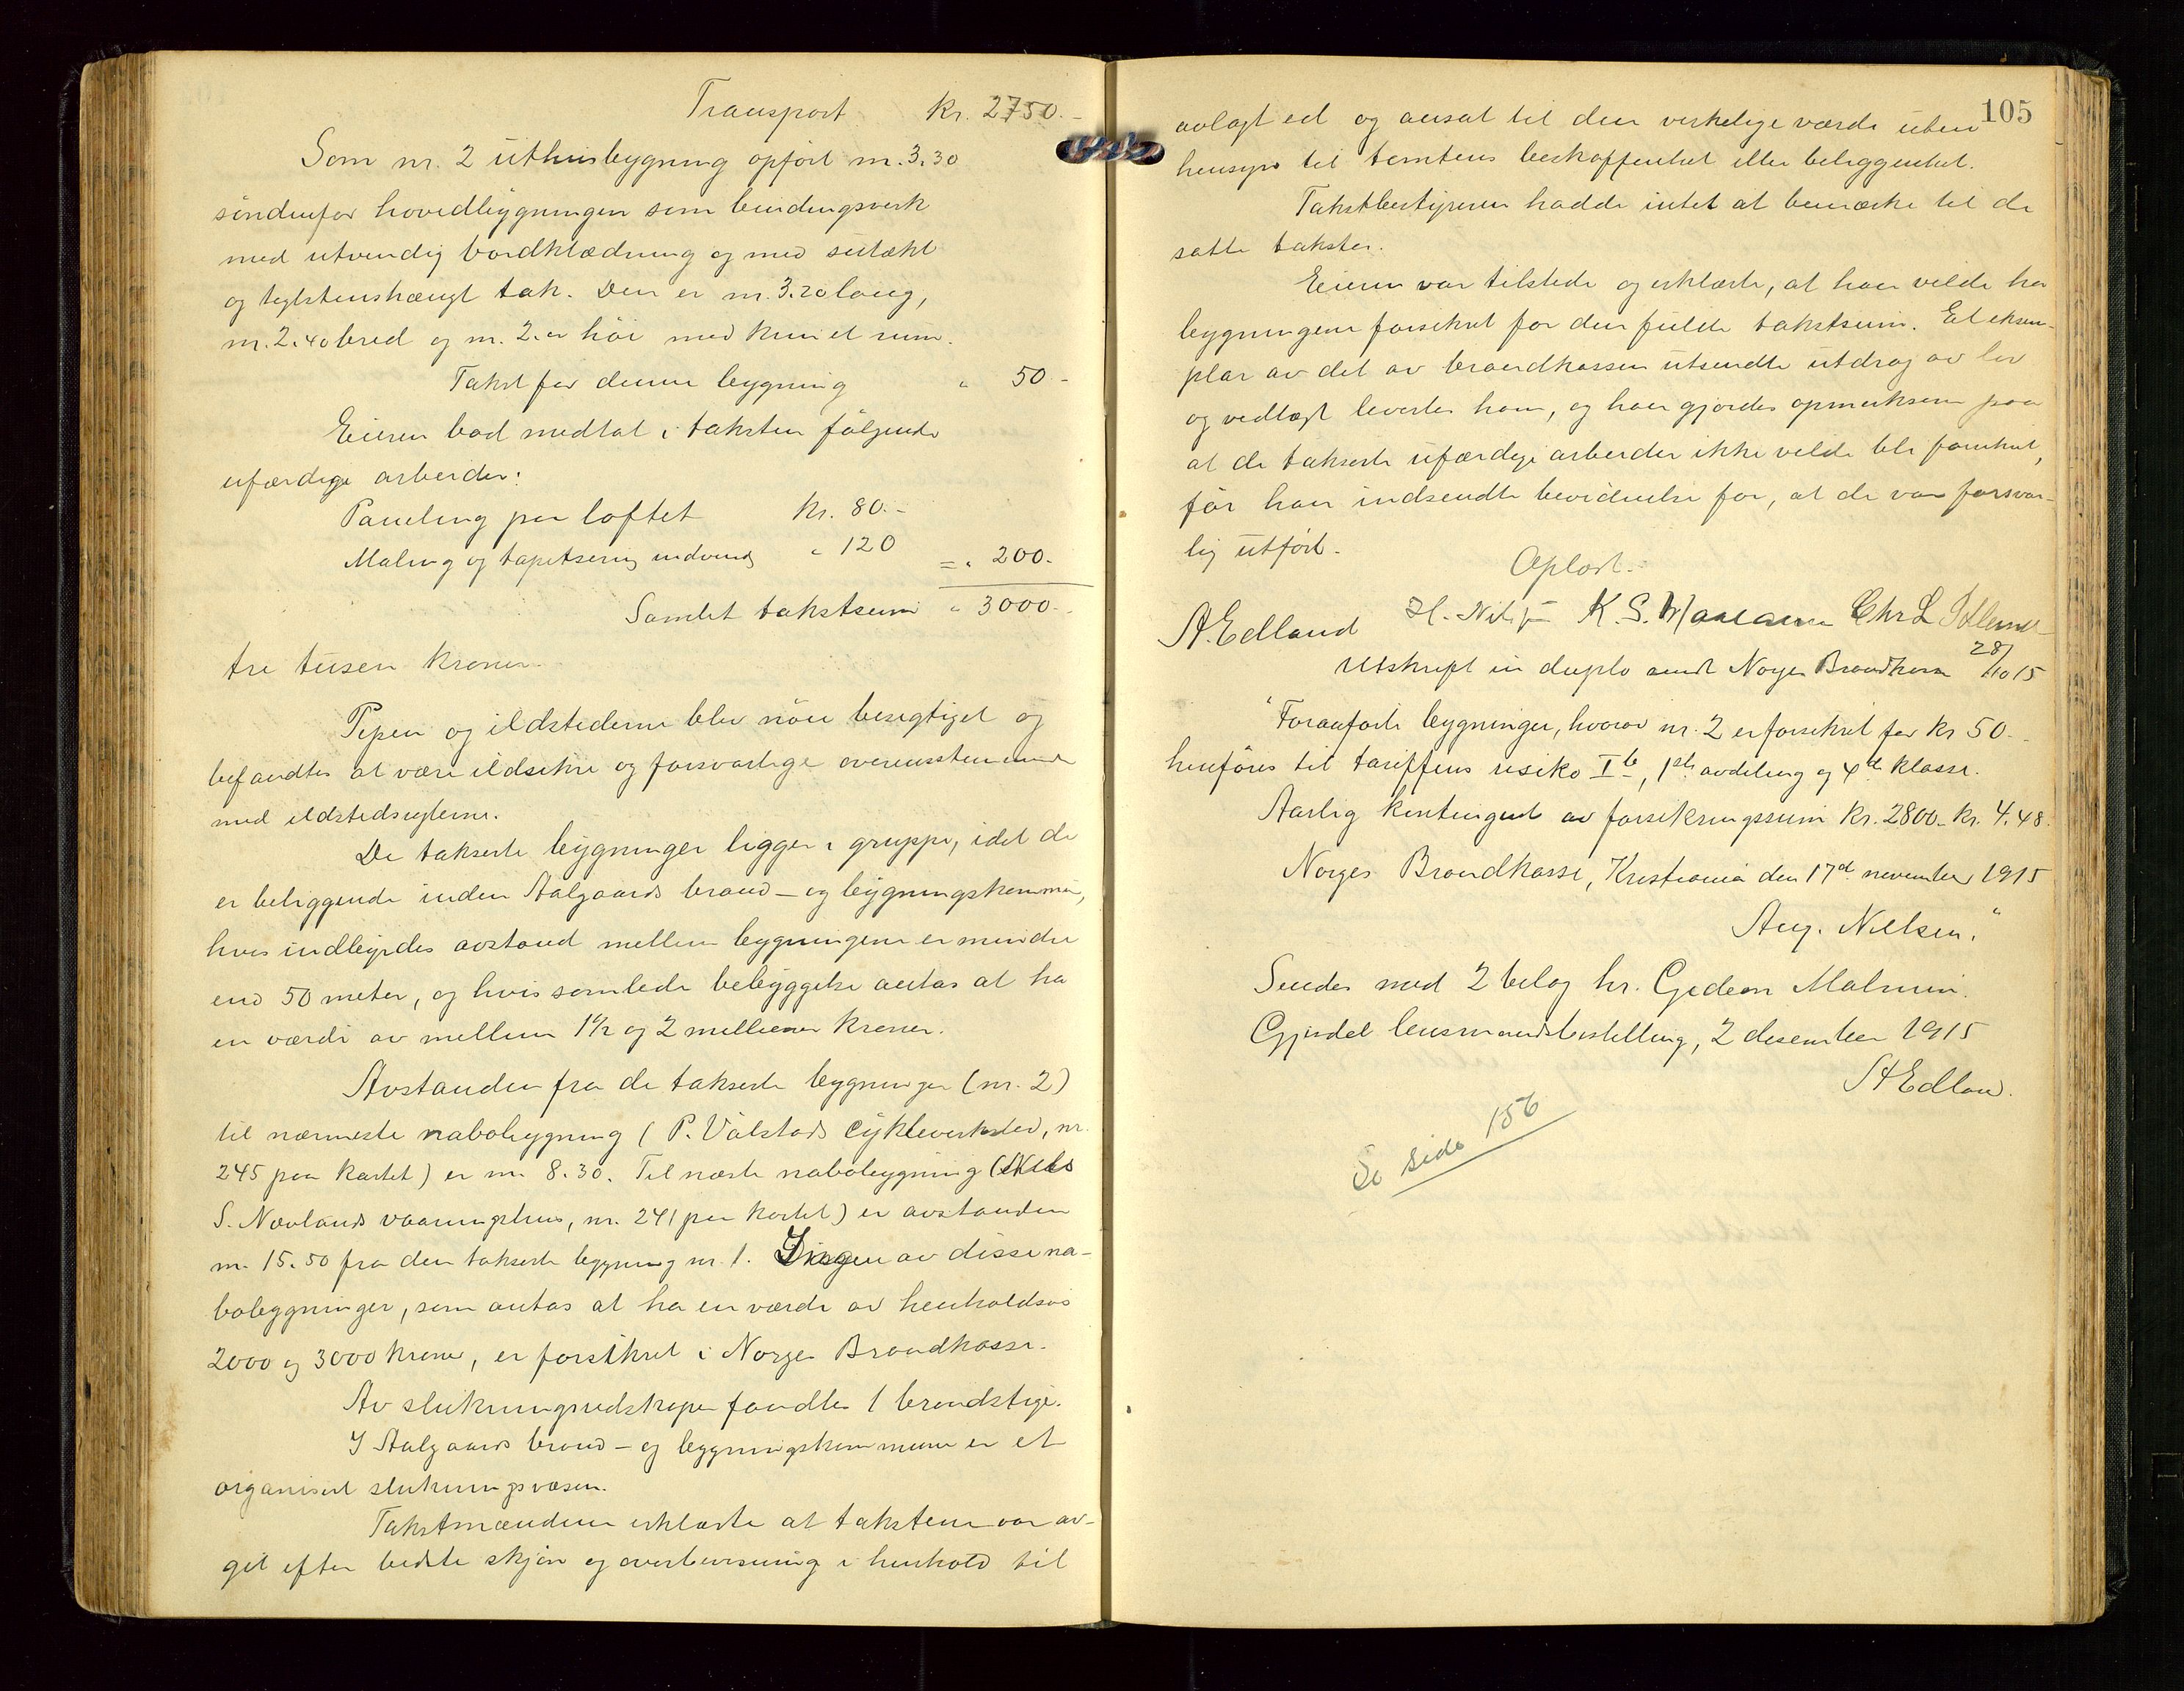 Transport kr. 2750.-
Som nr. 2 uthusbygning opført m. 3.30
søndenfor hovedbygningen som bindingsverk
med utvendig bordklædning og med sutækt
og teglstenshængt tak. Den er m. 3.20 lang,
m. 2.40 bred og m. 2. høi med kun et rum.
Takst for denne bygning " 50 -
Eieren bad medtat i taksten følgende
ufærdige arbeider:
Paneling paa loftet kr. 80.-
Maling og tapetsering indvendig " 120
= " 200.
Samlet takstsum " 3000.-
tre tusen kroner.
Pipen og ildstederne blev nøie besigtiget og
befandtes at være ildsikre og forsvarlige overensstemmende
med ildstedsreglerne.
De takserte bygninger ligger i gruppe, idet de
er beliggende inden Aalgaards brand- og bygningskommune,
hvis indbyrdes avstand mellem bygningene er mindre
end 50 meter, og hvis samlede bebyggelse antas at ha
en værdi av mellem 1½ og 2 millioner kroner.
Avstanden fra de takserte bygninger (nr. 2)
til nærmeste nabobygning (P. Válstads cykleverksted, nr.
245 paa kartet) er m. 8.30. Til næste nabobygning (Nils
S. Nævlands vaaningshus, nr. 241 paa kartet) er avstanden
m. 15.50 fra den takserte bygning nr. 1. Ingen av disse na-
bobygninger, som antas at ha en værdi av henholdsvis
2000 og 3000 kroner, er forsikret i Norges Brandkasse.
Av slukningsredskaper fandtes 1 brandstige.
I Aalgaards brand- og bygningskommune er et
organisert slukningsvæsen.
Takstmændene erklærte at taksten var av-
git efter bedste skjøn og overbevisning i henhold til
105
avlagt ed og ansat til den virkelige værdi uten
hensyn til tomtens beskaffenhet eller beliggenhet.
Takstbestyreren hadde intet at bemærke til de
satte takster.
Eieren var tilstede og erklærte, at han vilde ha
bygningene forsikret for den fulde takstsum. Et eksem-
plar av det av brandkassen utsendte utdrag av lov
og vedtægt levertes ham, og han gjordes opmerksom paa
at de takserte ufærdige arbeider ikke vilde bli forsikret,
før han indsendte bevidnelse for, at de var forsvar-
lig utført.
Oplæst.
A. Edland H. K. S. Chr L
Utskrift in duplo sendt Norges Brandkasse 28/10 15
"Foranførte bygninger, hvorav nr. 2 er forsikret for kr 50.-
henføres til tariffens risiko I b, 1ste avdeling og 4de klasse.
Aarlig kontingent av forsikringssum kr. 2800.- kr. 4.48.
Norges Brandkasse, Kristiania den 17d november 1915
Aug. Nielsen."
Sendes med 2 bilag hr. Gideon Malmin.
Gjesdal lensmandsbestilling, 2 desember 1915
A Edland.
Se side 156